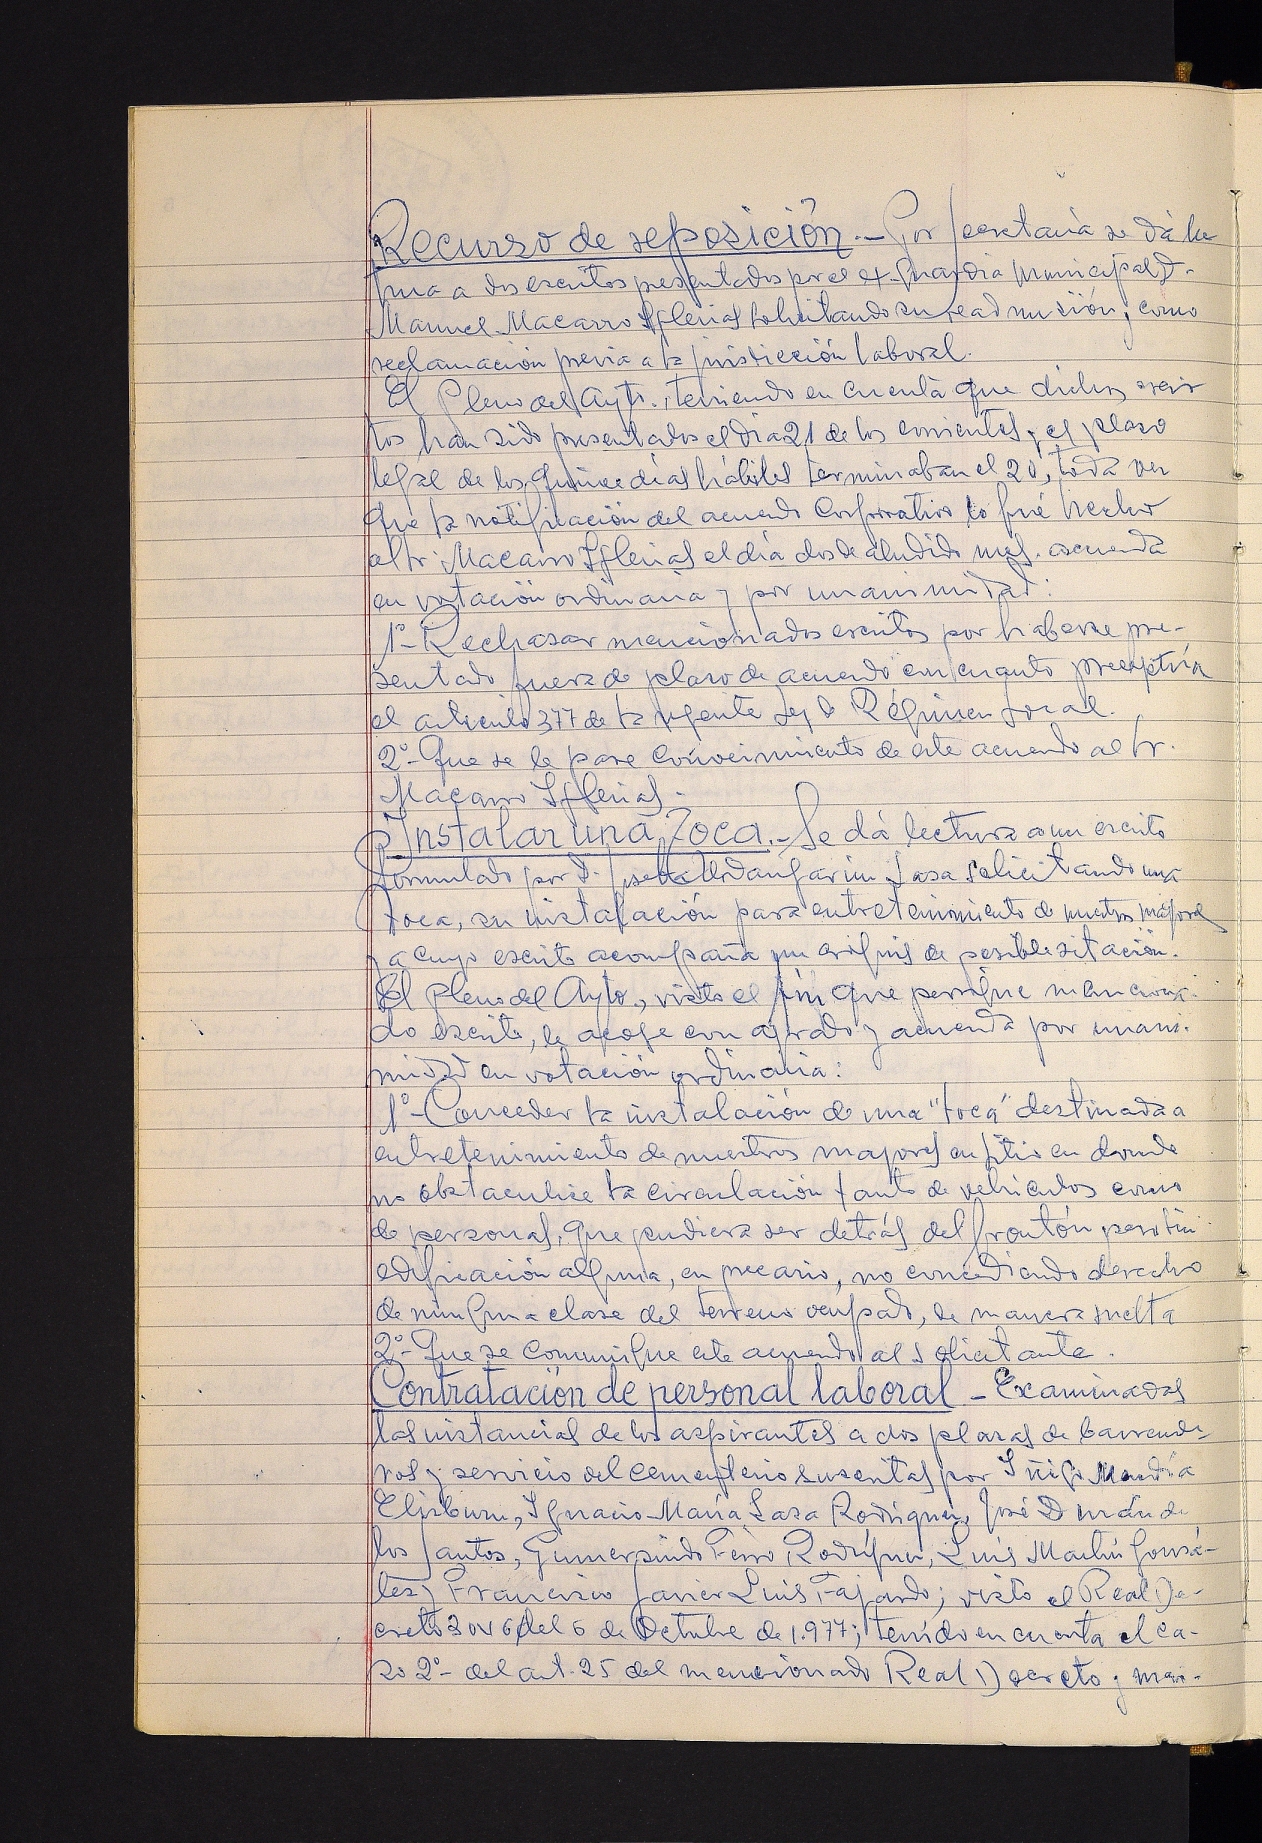 Recurso de reposición.- Por Secretaría se dá lec
tura a dos escritos presentados por el ex-Guardia Municipal D.
Manuel Macarro Iglesias solicitando su readmisión y como
reclamación previa a la jurisdicción laboral.
El Pleno del Ayto., teniendo en cuenta que dichos escri
tos han sido presentados el día 21 de los corrientes y el plazo
legal de los quince días hábiles terminaban el 20, toda vez
que la notificación del acuerdo Corporativo lo fué hecho
al Sr. Macarro Iglesias el día dos de aludido mes, acuerda
en votación ordinaria y por unanimidad:
1º- Rechazar mencionados escritos por haberse pre-
sentado fuera de plazo de acuerdo con cuanto preceptúa
el artículo 377 de la vigente Ley de Régimen Local.
2º- Que se le pase conocimiento de este acuerdo al Sr.
Macarro Iglesias.-
Instalar una Toca.- Se dá lectura a un escrito
formulado por D. Urdangarin Lasa solicitando una
toca, su instalación para entretenimiento de nuestros mayores
y a cuyo escrito acompaña un croquis de posible sitación.
El pleno del Ayto., visto el fin que persigue menciona-
do escrito, le acoge con agrado y acuerda por unani-
midad en votación ordinaria:
1º- Conceder la instalación de una "toca" destinada a
entretenimiento de nuestros mayores en sitio en donde
no obstaculice la circulación tanto de vehículos como
de personas, que pudiera ser detrás del frontón pero sin
edificación alguna, en precario, no concediendo derecho
de ninguna clase del terreno ocupado, de manera suelta
2º- Que se comunique este acuerdo al solicitante.
Contratación de personal laboral - Examinadas
las instancias de los aspirantes a dos plazas de barrende-
ros y servicio del cementerio suscritas por Iñigo Mendia
Elizburu, Ignacio María Lasa Rodríguez, José Durán de
los Santos, Gumersindo Feijo Rodríguez, Luis Martín Gonzá-
lez y Francisco Javier Luis Fajardo; visto el Real De-
creto 3046 del 6 de Octubre de 1.977; tenido en cuenta el ca-
so 2º- del art. 25 del mencionado Real Decreto y